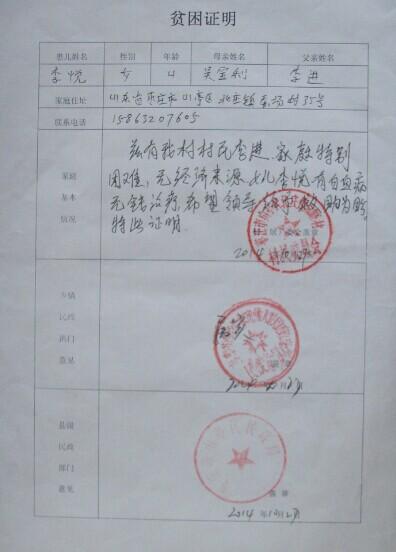 贫困证明
患儿姓名 性别 年龄 母亲姓名 父亲姓名
李悦 女 4 吴宝利 李进
家庭住址 山东省枣庄市山亭区北庄镇 村35号
联系电话 15863207605
家庭基本情况
兹有我村村民李进,家庭特别
困难,无经济来源,女儿李悦有白血病
无钱治疗,希望领导给予救助为盼
特此证明.
2014
乡镇民政部门意见
2014
县级民政部门意见
盖章
2014年10月12日